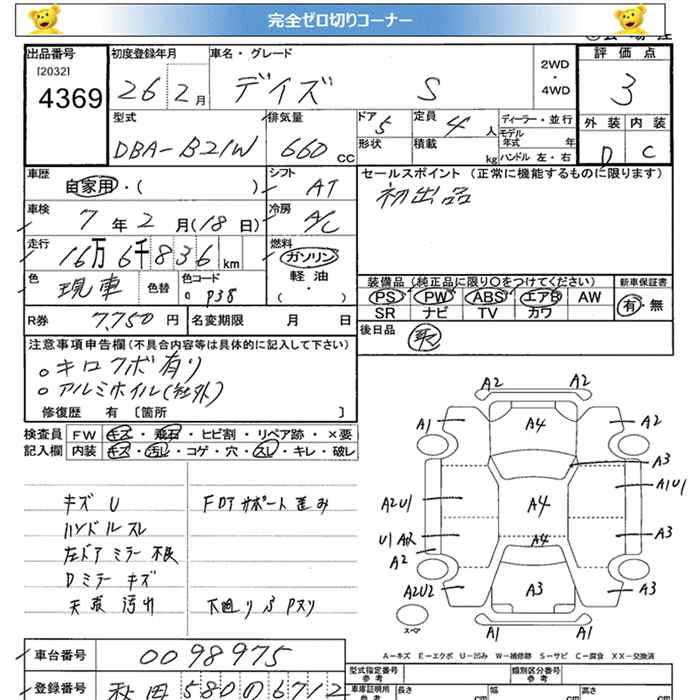 完全ゼロ切りコーナー
出品番号 初度登録年月 車名・グレード 評価点
[2032]
4369 26 2月 デイズ S 2WD・4WD 3
型式 排気量 ドア 5 定員 4人 ディーラー・並行 外装 内装
DBA-B21W 660 CC 形状 積載 kg モデル年式 年 ハンドル 左・右 D C
車歴 自家用・( ) シフト AT セールスポイント (正常に機能するものに限ります)
初出品
車検 7年2月(18日) 冷房 A/C
走行 16万6千836km 燃料 ガソリン
軽油
( )
色 現車 色替 色コード P38 装備品 (純正品に限り○をつけてください) 新車保証書
PS PW ABS エアB AW 有・無
SR ナビ TV カワ
R券 7,750円 名変期限 月 日 後日品 取
注意事項申告欄(不具合内容等は具体的に記入して下さい)
。キロクボ有り
。アルミホイル(社外)
修復歴 有 〔箇所 〕
検査員 FW キズ・飛石・ヒビ割・リペア跡・×要
記入欄 内装 キズ・汚レ・コゲ・穴・スレ・キレ・破レ
キズ U FDTサポート歪み
ハンドルスレ
左ドアミラー不良
Dミラーキズ
天張汚れ 下廻りサビPスリ
A2 A2
A1 A4 A2
A3
A2U1 A4 A1U1
U1 A4 A3
A2
A2U2 A3 A3
スペア A1 A1
A－キズ E－エクボ U－凹み W－補修跡 S－サビ C－腐食 XX－交換済
車台番号 0098975
型式指定番号 参考 類別区分番号 参考
登録番号 580 の 6712
車庫証明用 参考 長さ cm 幅 cm 高さ cm